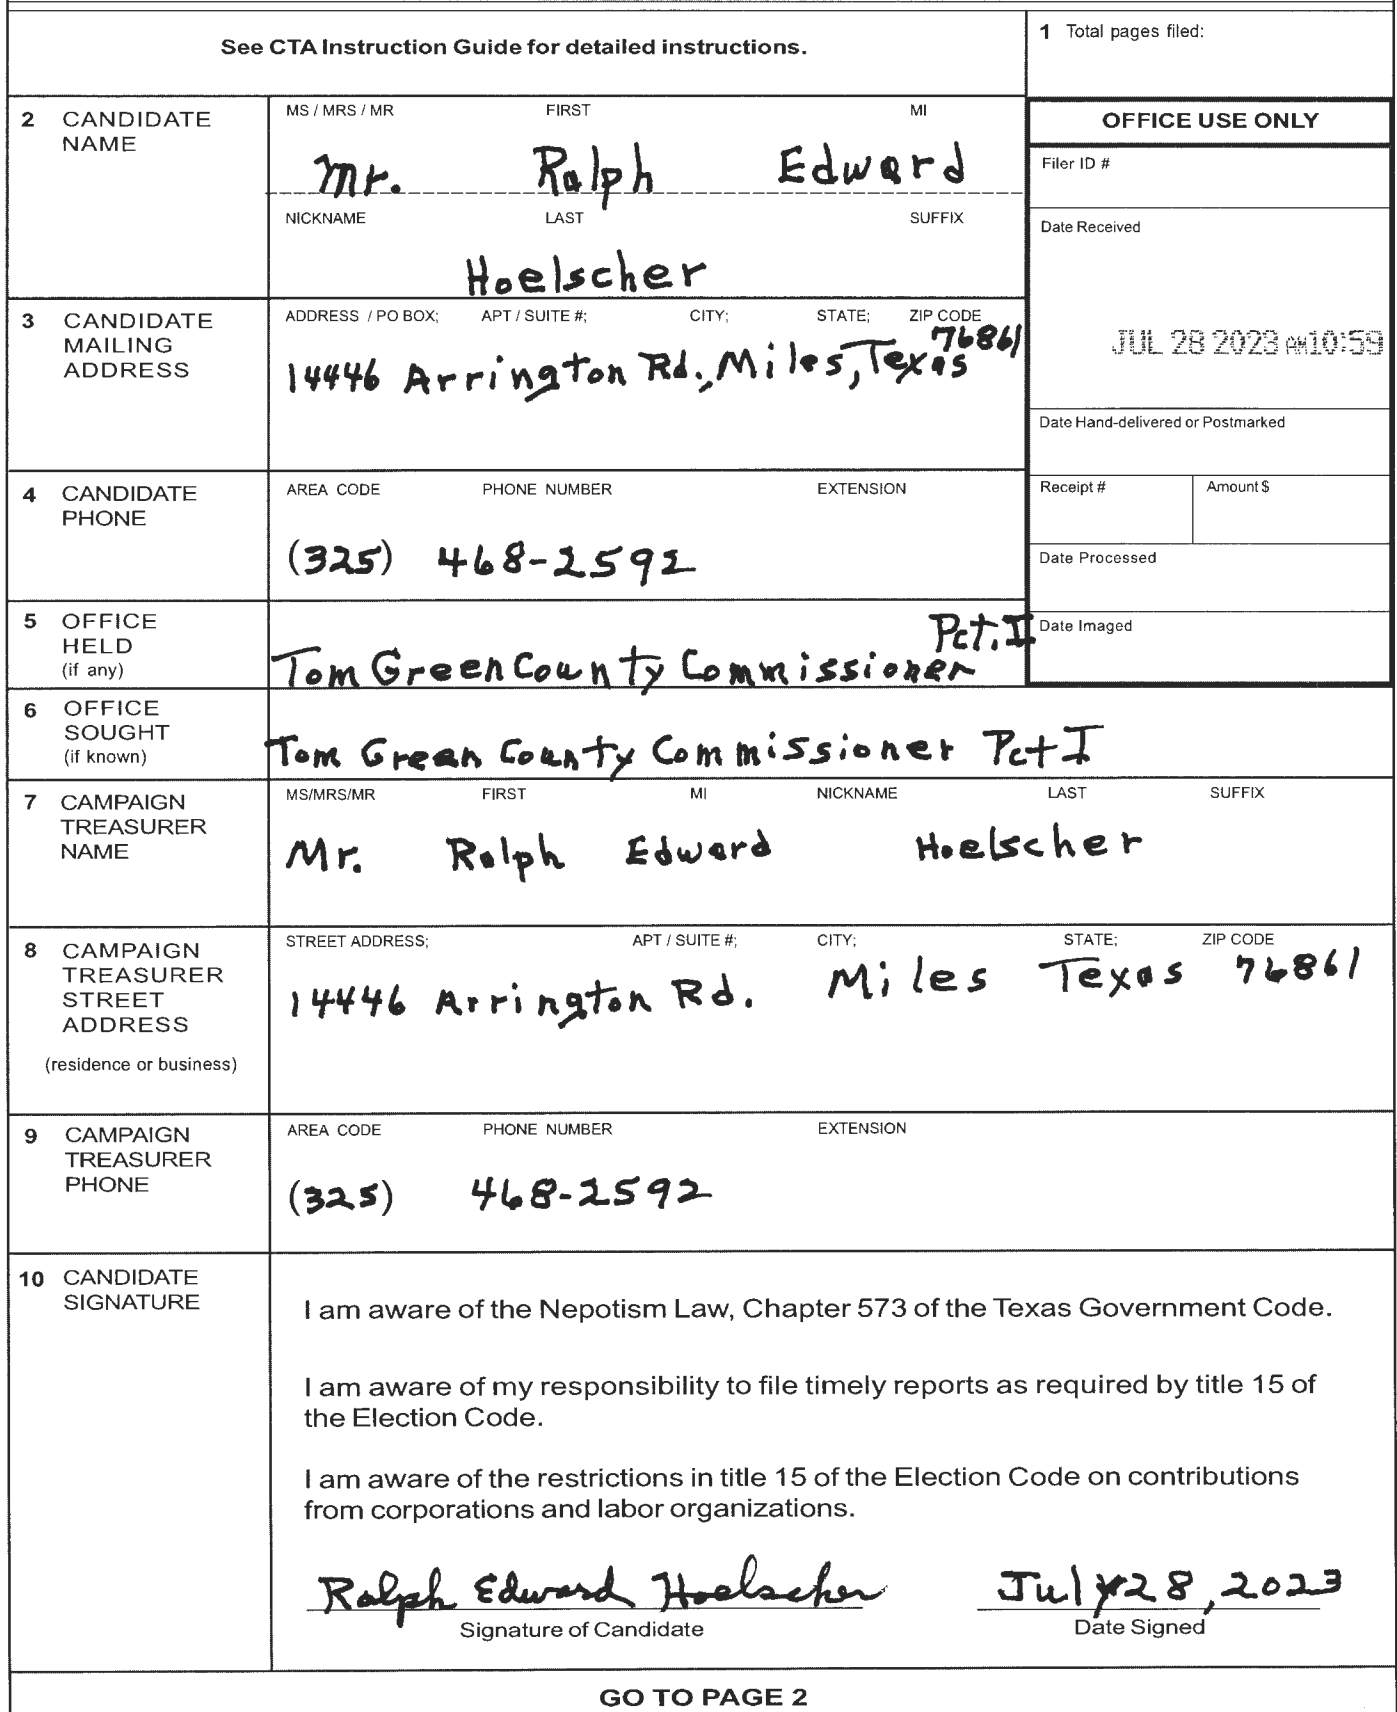 See CTA Instruction Guide for detailed instructions.
1 Total pages filed:
2 CANDIDATE NAME
MS / MRS / MR FIRST MI
Mr. Ralph Edward
NICKNAME LAST SUFFIX
Hoelscher
OFFICE USE ONLY
Filer ID #
Date Received
JUL 28 2023 AM10:59
Date Hand-delivered or Postmarked
Receipt # Amount $
Date Processed
Date Imaged
3 CANDIDATE MAILING ADDRESS
ADDRESS / PO BOX; APT / SUITE #; CITY; STATE; ZIP CODE
14446 Arrington Rd., Miles, Texas 76861
4 CANDIDATE PHONE
AREA CODE PHONE NUMBER EXTENSION
(325) 468-2592
5 OFFICE HELD (if any)
Tom Green County Commissioner Pct. II
6 OFFICE SOUGHT (if known)
Tom Green County Commissioner Pct I
7 CAMPAIGN TREASURER NAME
MS/MRS/MR FIRST MI NICKNAME LAST SUFFIX
Mr. Ralph Edward Hoelscher
8 CAMPAIGN TREASURER STREET ADDRESS
(residence or business)
STREET ADDRESS; APT / SUITE #; CITY; STATE; ZIP CODE
14446 Arrington Rd. Miles Texas 76861
9 CAMPAIGN TREASURER PHONE
AREA CODE PHONE NUMBER EXTENSION
(325) 468-2592
10 CANDIDATE SIGNATURE
I am aware of the Nepotism Law, Chapter 573 of the Texas Government Code.
I am aware of my responsibility to file timely reports as required by title 15 of
the Election Code.
I am aware of the restrictions in title 15 of the Election Code on contributions
from corporations and labor organizations.
Ralph Edward Hoelscher July 28, 2023
Signature of Candidate Date Signed
GO TO PAGE 2